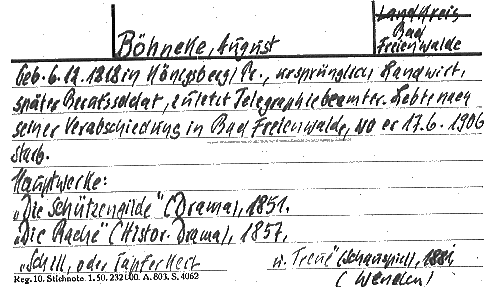 Landkreis
Bad
Freienwalde
Böhneke, August
Geb. 6.12.1818 in Königsberg/Pr., ursprünglich Landwirt,
später Berufssoldat, zuletzt Telegraphiebeamter. Lebte nach
seiner Verabschiedung in Bad Freienwalde, wo er 17.6.1906
starb.
Hauptwerke:
„Die Schützengilde" (Drama), 1851.
„Die Rache" (Histor. Drama), 1857.
„Schill, oder Tapferkeit u. Treue" (Schauspiel),
(Wenden)
Reg. 10. Stichnote. 1. 50. 232100. A. 803. S. 4062